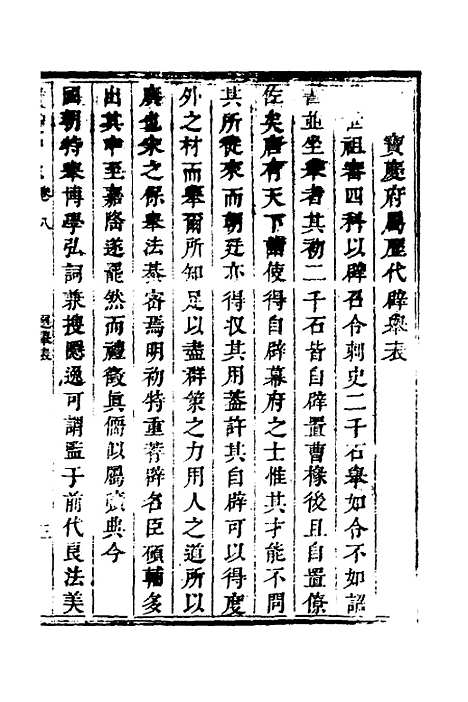 寶慶府屬歷代辟舉表
世祖審四科以辟召令刺史二千石舉如令不如詔
書並坐舉者其初二千石皆自辟置曹椽後且自置僚
佐矣唐有天下諸使得自辟幕府之士惟其才能不問
其所從來而朝廷亦得收其用蓋許其自辟可以得度
外之材而舉爾所知足以盡群策之力用人之道所以
廣也宋之保舉法綦密焉明初特重薦辟名臣碩輔多
出其中至嘉隆遂罷然而禮徵眞儒似屬曠典今
國朝特舉博學弘詞兼搜隱逸可謂監于前代良法美
卷八
選舉表
三